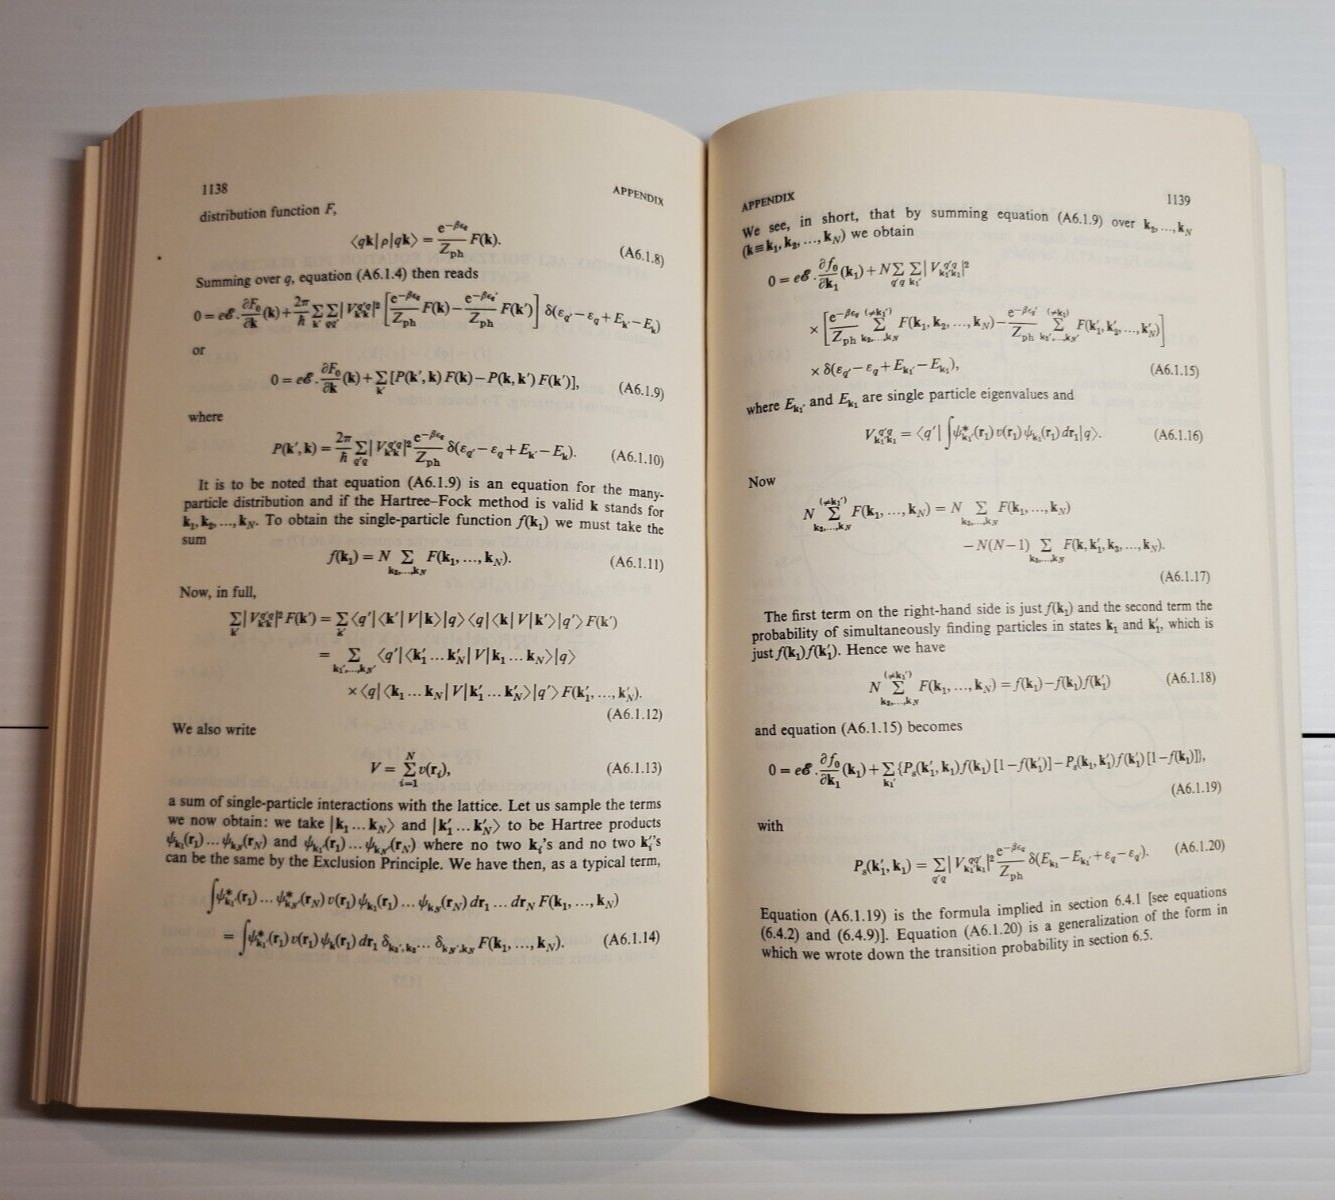 1138
APPENDIX
distribution function F,
⟨qk|ρ|qk⟩ = e^{−βε_q}/Z_ph F(k). (A6.1.8)
Summing over q, equation (A6.1.4) then reads
0 = eℰ.∂F₀/∂k (k) + 2π/ħ Σ_{k'} Σ_{qq'} |V^{q'q}_{k'k}|² [e^{−βε_q}/Z_ph F(k) − e^{−βε_q'}/Z_ph F(k')] δ(ε_{q'} − ε_q + E_{k'} − E_k)
or
0 = eℰ.∂F₀/∂k (k) + Σ_{k'} [P(k', k) F(k) − P(k, k') F(k')], (A6.1.9)
where
P(k', k) = 2π/ħ Σ_{q'q} |V^{q'q}_{k'k}|² e^{−βε_q}/Z_ph δ(ε_{q'} − ε_q + E_{k'} − E_k). (A6.1.10)
It is to be noted that equation (A6.1.9) is an equation for the many-
particle distribution and if the Hartree–Fock method is valid k stands for
k₁, k₂, ..., k_N. To obtain the single-particle function f(k₁) we must take the
sum
f(k₁) = N Σ_{k₂,...,k_N} F(k₁, ..., k_N). (A6.1.11)
Now, in full,
Σ_{k'} |V^{q'q}_{k'k}|² F(k') = Σ_{k'} ⟨q'|⟨k'|V|k⟩|q⟩⟨q|⟨k|V|k'⟩|q'⟩ F(k')
= Σ_{k₁',...,k_N'} ⟨q'|⟨k₁' ... k_N'|V|k₁ ... k_N⟩|q⟩
× ⟨q|⟨k₁ ... k_N|V|k₁' ... k_N'⟩|q'⟩ F(k₁', ..., k_N').
(A6.1.12)
We also write
V = Σ_{i=1}^{N} v(r_i), (A6.1.13)
a sum of single-particle interactions with the lattice. Let us sample the terms
we now obtain: we take |k₁ ... k_N⟩ and |k₁' ... k_N'⟩ to be Hartree products
ψ_{k₁}(r₁) ... ψ_{k_N}(r_N) and ψ_{k₁'}(r₁) ... ψ_{k_N'}(r_N) where no two k_i's and no two k_i''s
can be the same by the Exclusion Principle. We have then, as a typical term,
∫ψ*_{k₁'}(r₁) ... ψ*_{k_N'}(r_N) v(r₁) ψ_{k₁}(r₁) ... ψ_{k_N}(r_N) dr₁ ... dr_N F(k₁, ..., k_N)
= ∫ψ*_{k₁'}(r₁) v(r₁) ψ_k(r₁) dr₁ δ_{k₂',k₂} ... δ_{k_N',k_N} F(k₁, ..., k_N). (A6.1.14)
APPENDIX
1139
We see, in short, that by summing equation (A6.1.9) over k₂, ..., k_N
(k ≡ k₁, k₂, ..., k_N) we obtain
0 = eℰ.∂f₀/∂k₁ (k₁) + N Σ_{q'q} Σ_{k₁'} |V^{q'q}_{k₁'k₁}|²
× [e^{−βε_q}/Z_ph Σ^{(≠k₁')}_{k₂,...,k_N} F(k₁, k₂, ..., k_N) − e^{−βε_q'}/Z_ph Σ^{(≠k₁)}_{k₂',...,k_N'} F(k₁', k₂', ..., k_N')]
× δ(ε_{q'} − ε_q + E_{k₁'} − E_{k₁}), (A6.1.15)
where E_{k₁'} and E_{k₁} are single particle eigenvalues and
V^{q'q}_{k₁'k₁} = ⟨q'| ∫ψ*_{k₁'}(r₁) v(r₁) ψ_{k₁}(r₁) dr₁|q⟩. (A6.1.16)
Now
N Σ^{(≠k₁')}_{k₂,...,k_N} F(k₁, ..., k_N) = N Σ_{k₂,...,k_N} F(k₁, ..., k_N)
− N(N−1) Σ_{k₃,...,k_N} F(k, k₁', k₃, ..., k_N).
(A6.1.17)
The first term on the right-hand side is just f(k₁) and the second term the
probability of simultaneously finding particles in states k₁ and k₁', which is
just f(k₁) f(k₁'). Hence we have
N Σ^{(≠k₁')}_{k₂,...,k_N} F(k₁, ..., k_N) = f(k₁) − f(k₁) f(k₁') (A6.1.18)
and equation (A6.1.15) becomes
0 = eℰ.∂f₀/∂k₁ (k₁) + Σ_{k₁'} {P_s(k₁', k₁) f(k₁) [1 − f(k₁')] − P_s(k₁, k₁') f(k₁') [1 − f(k₁)]},
(A6.1.19)
with
P_s(k₁', k₁) = Σ_{q'q} |V^{qq'}_{k₁'k₁}|² e^{−βε_q}/Z_ph δ(E_{k₁} − E_{k₁'} + ε_q − ε_{q'}). (A6.1.20)
Equation (A6.1.19) is the formula implied in section 6.4.1 [see equations
(6.4.2) and (6.4.9)]. Equation (A6.1.20) is a generalization of the form in
which we wrote down the transition probability in section 6.5.